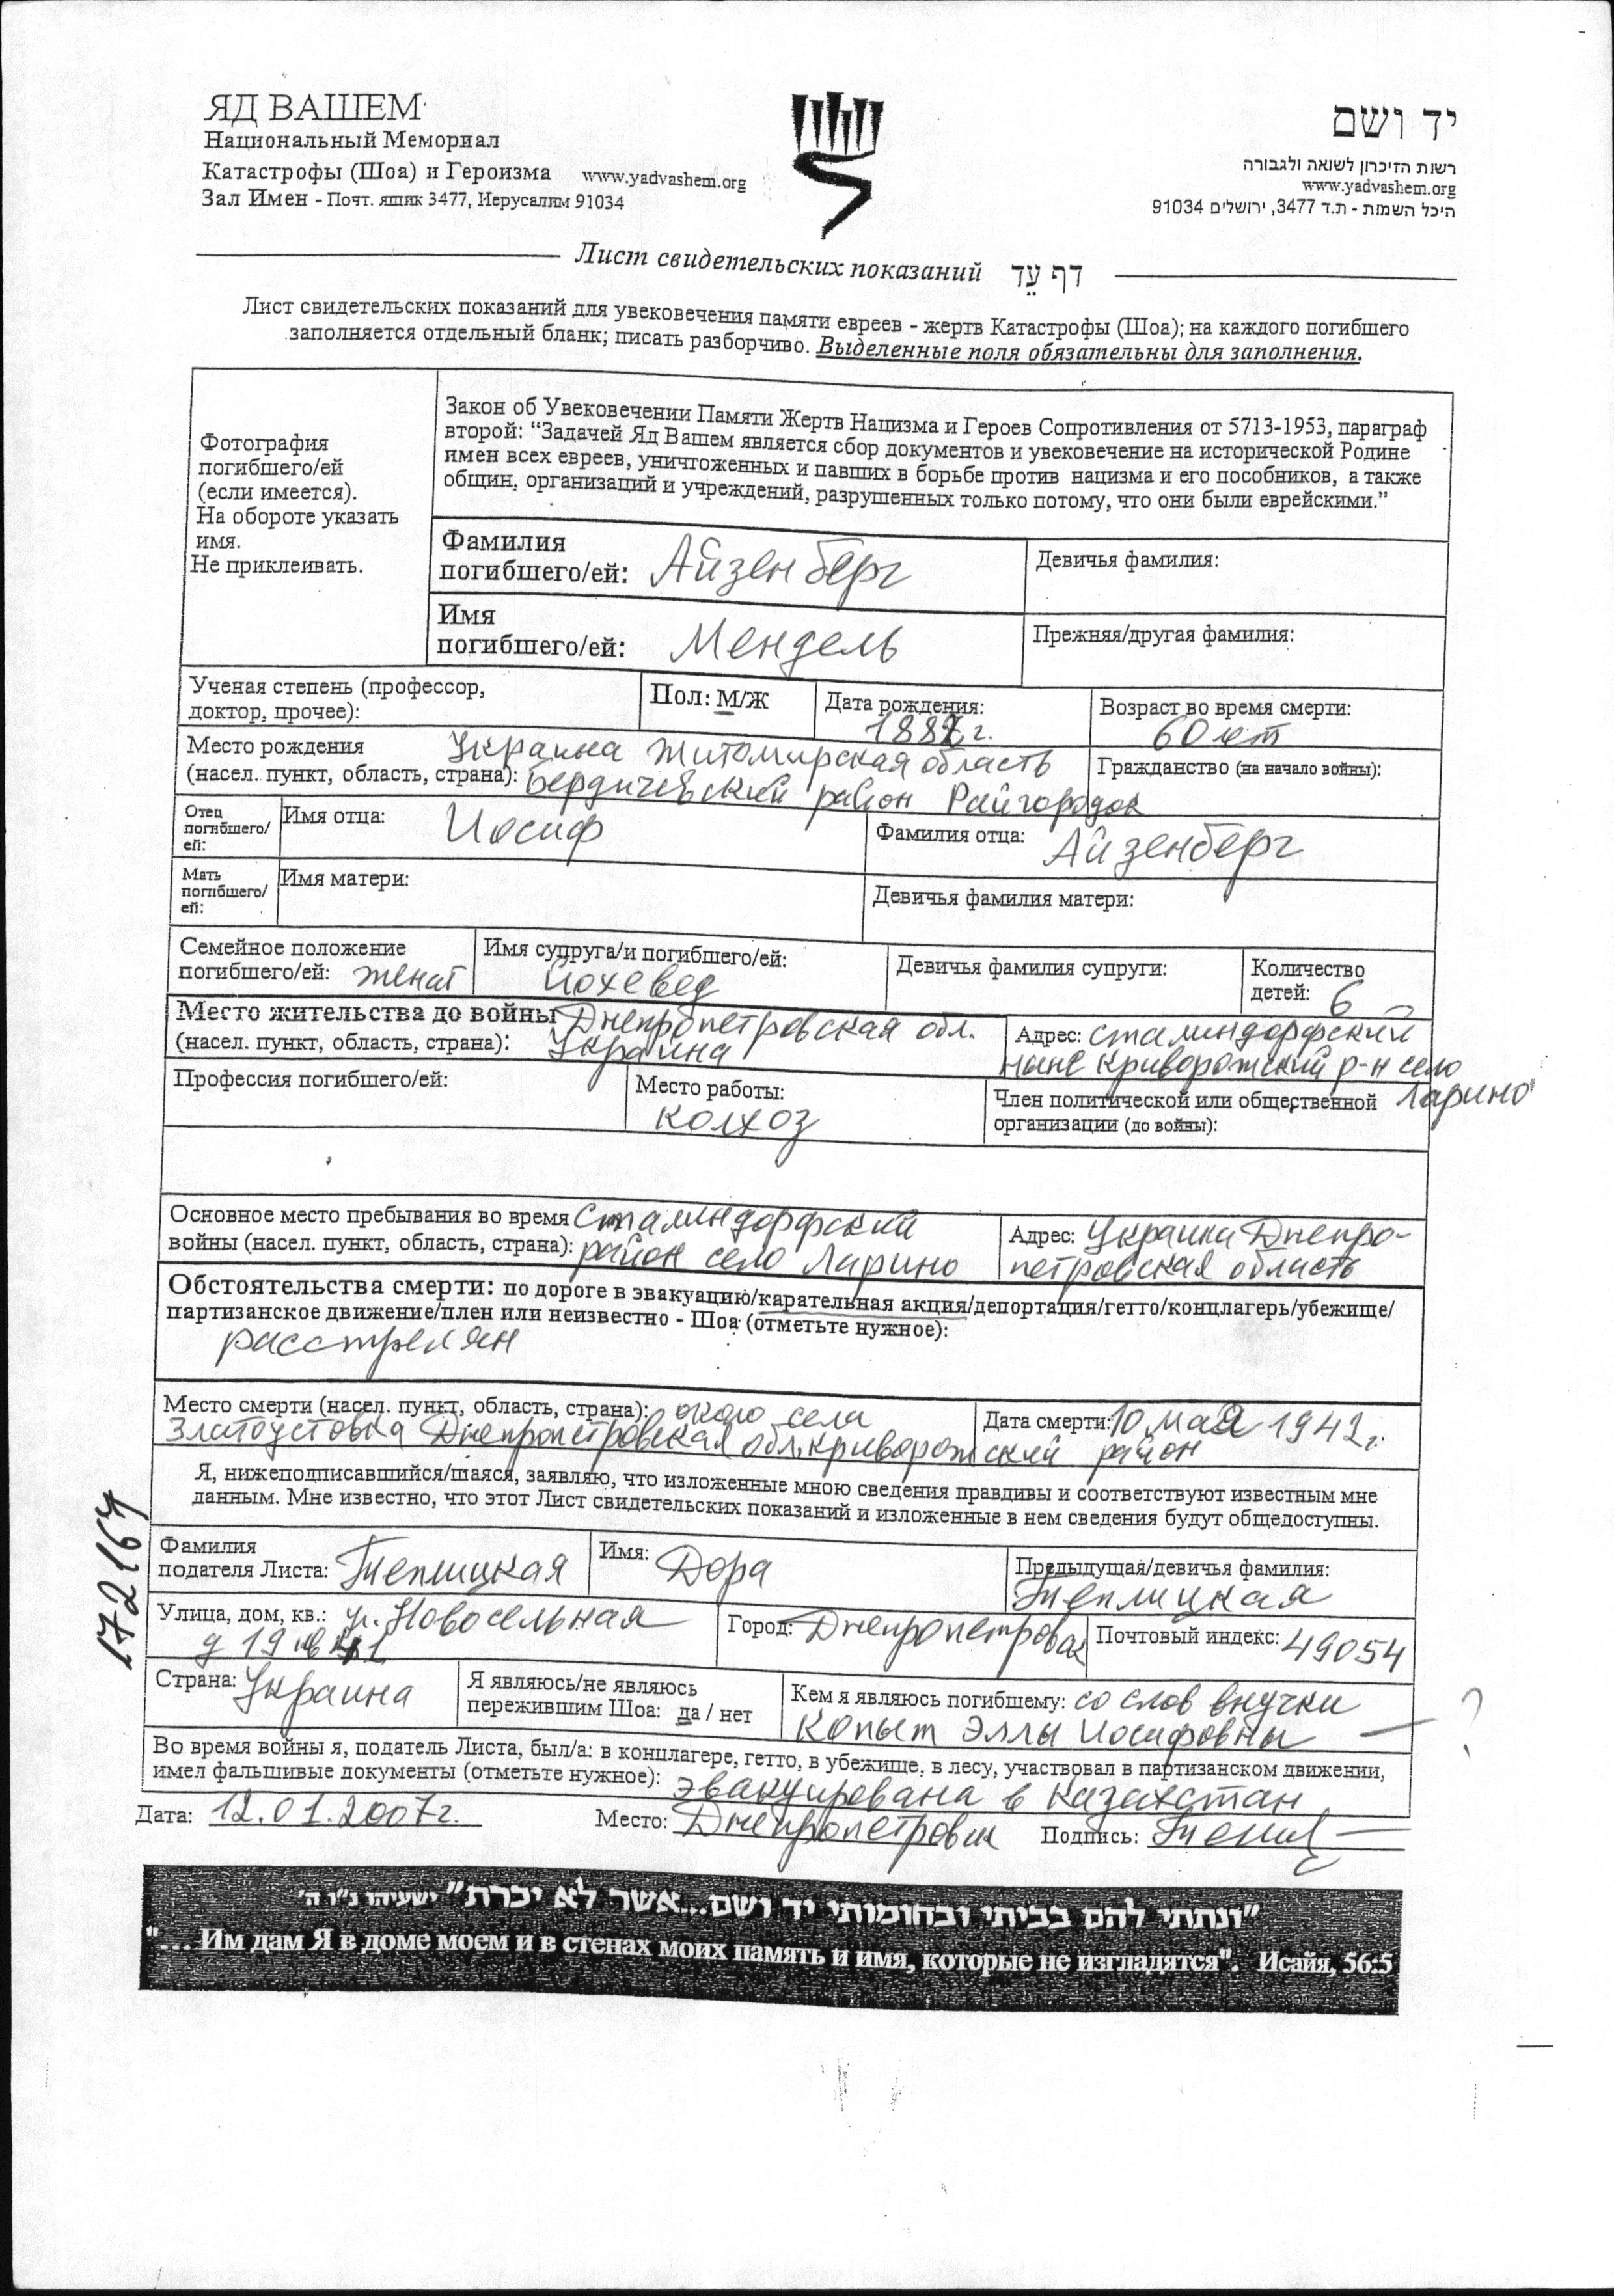 ЯД ВАШЕМ
Национальный Мемориал
Катастрофы (Шоа) и Героизма www.yadvashem.org
Зал Имен - Почт. ящик 3477, Иерусалим 91034
יד ושם
רשות הזיכרון לשואה ולגבורה
www.yadvashem.org
היכל השמות - ת.ד 3477, ירושלים 91034
Лист свидетельских показаний דף עֵד
Лист свидетельских показаний для увековечения памяти евреев - жертв Катастрофы (Шоа); на каждого погибшего
заполняется отдельный бланк; писать разборчиво. Выделенные поля обязательны для заполнения.
Фотография
погибшего/ей
(если имеется).
На обороте указать
имя.
Не приклеивать.
Закон об Увековечении Памяти Жертв Нацизма и Героев Сопротивления от 5713-1953, параграф
второй: “Задачей Яд Вашем является сбор документов и увековечение на исторической Родине
имен всех евреев, уничтоженных и павших в борьбе против нацизма и его пособников, а также
общин, организаций и учреждений, разрушенных только потому, что они были еврейскими.”
Фамилия
погибшего/ей: Айзенберг
Девичья фамилия:
Имя
погибшего/ей: Мендель
Прежняя/другая фамилия:
Ученая степень (профессор,
доктор, прочее):
Пол: М/Ж
Дата рождения:
1882 г.
Возраст во время смерти:
60 лет
Место рождения Украина Житомирская область
(насел. пункт, область, страна): Бердичевский район Райгородок
Гражданство (на начало войны):
Отец
погибшего/
ей:
Имя отца: Иосиф
Фамилия отца: Айзенберг
Мать
погибшего/
ей:
Имя матери:
Девичья фамилия матери:
Семейное положение
погибшего/ей: женат
Имя супруга/и погибшего/ей:
Йохевед
Девичья фамилия супруги:
Количество
детей: 6
Место жительства до войны Днепропетровская обл.
(насел. пункт, область, страна): Украина
Адрес: Сталиндорфский
ныне Криворожский р-н село
Ларино
Профессия погибшего/ей:
Место работы:
колхоз
Член политической или общественной
организации (до войны):
Основное место пребывания во время Сталиндорфский
войны (насел. пункт, область, страна): район село Ларино
Адрес: Украина Днепро-
петровская область
Обстоятельства смерти: по дороге в эвакуацию/карательная акция/депортация/гетто/концлагерь/убежище/
партизанское движение/плен или неизвестно - Шоа (отметьте нужное):
расстрелян
Место смерти (насел. пункт, область, страна): около села
Златоустовка Днепропетровская обл. Криворожский район
Дата смерти: 10 мая 1942 г.
Я, нижеподписавшийся/шаяся, заявляю, что изложенные мною сведения правдивы и соответствуют известным мне
данным. Мне известно, что этот Лист свидетельских показаний и изложенные в нем сведения будут общедоступны.
172167
Фамилия
подателя Листа: Теплицкая
Имя: Дора
Предыдущая/девичья фамилия:
Теплицкая
Улица, дом, кв.: ул. Новосельная
д 19 кв
Город: Днепропетровск
Почтовый индекс: 49054
Страна: Украина
Я являюсь/не являюсь
пережившим Шоа: да / нет
Кем я являюсь погибшему: со слов внучки
Копыт Эллы Иосифовны — ?
Во время войны я, податель Листа, был/а: в концлагере, гетто, в убежище, в лесу, участвовал в партизанском движении,
имел фальшивые документы (отметьте нужное): эвакуирована в Казахстан
Дата: 12.01.2007г. Место: Днепропетровск Подпись:
"ונתתי להם בביתי ובחומותי יד ושם...אשר לא יכרת" ישעיהו נ"ו ה'
"... Им дам Я в доме моем и в стенах моих память и имя, которые не изгладятся". Исайя, 56:5